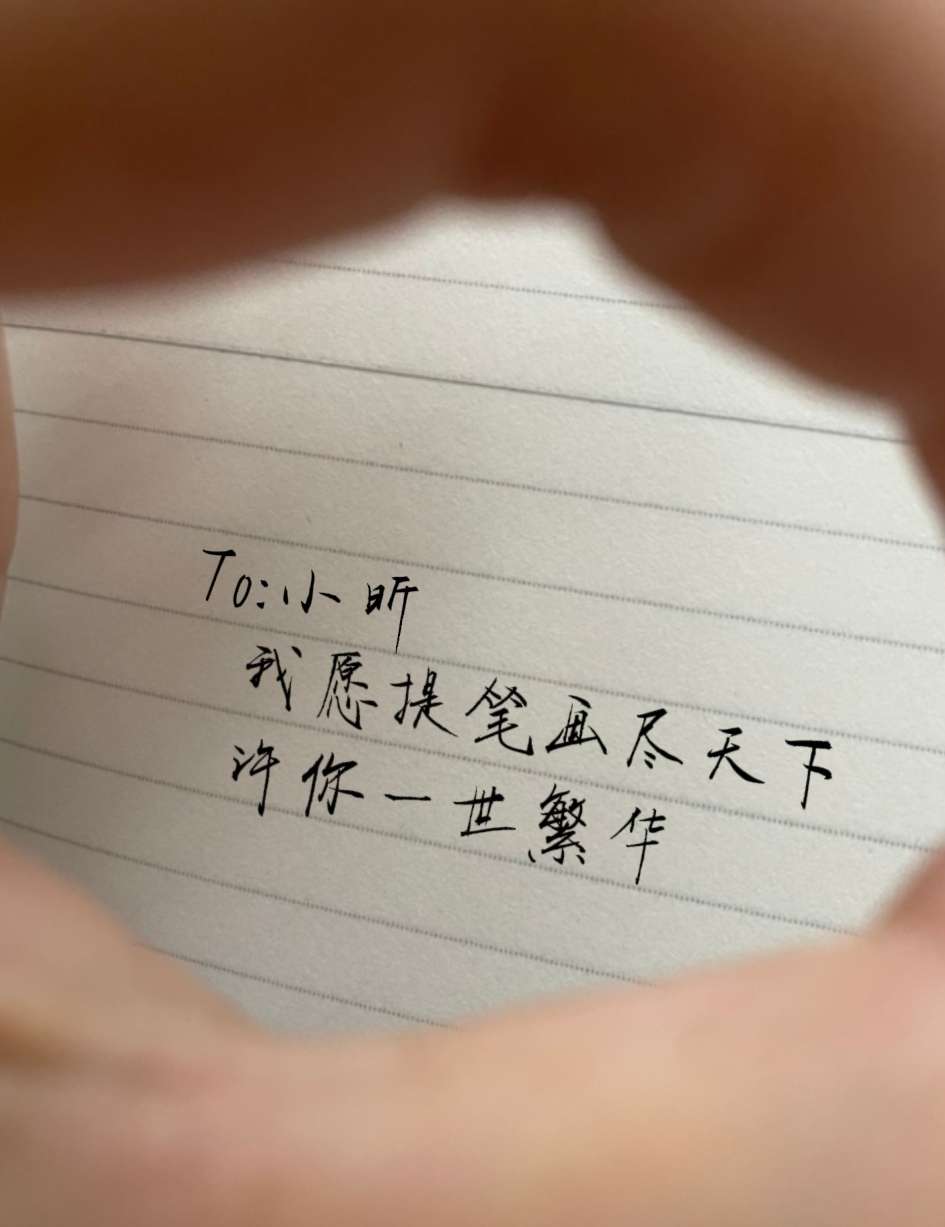 To:小昕
我愿提笔画尽天下
许你一世繁华